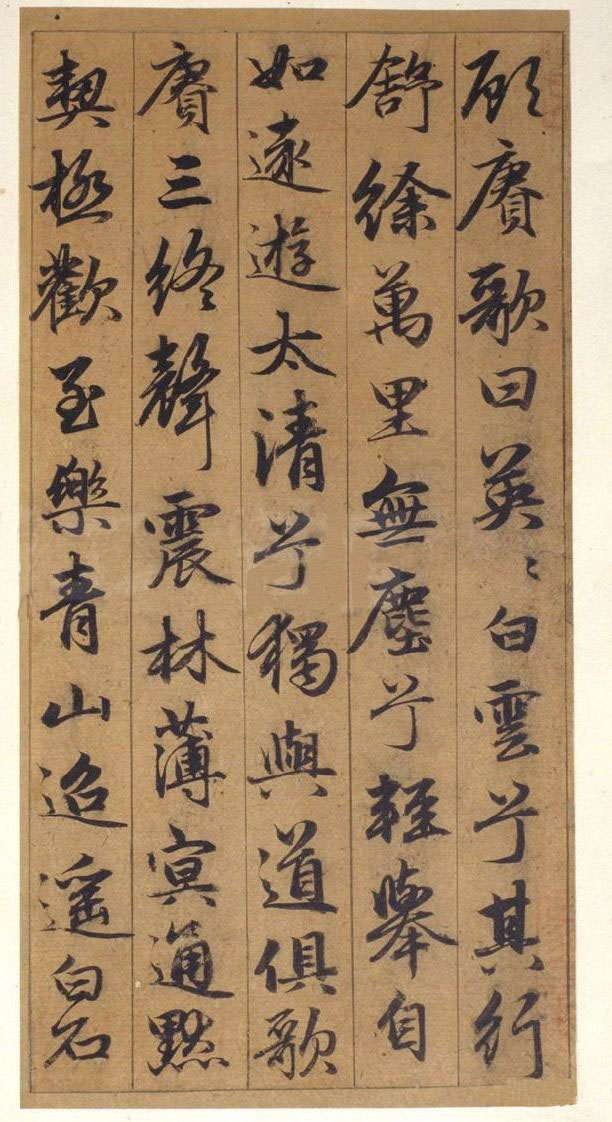 頋賡歌曰英〻白雲兮其行
舒徐萬里無塵兮輕舉自
如遠遊太清兮獨與道俱歌
賡三終聲震林薄冥通默
契極歡至樂青山迢遥白石